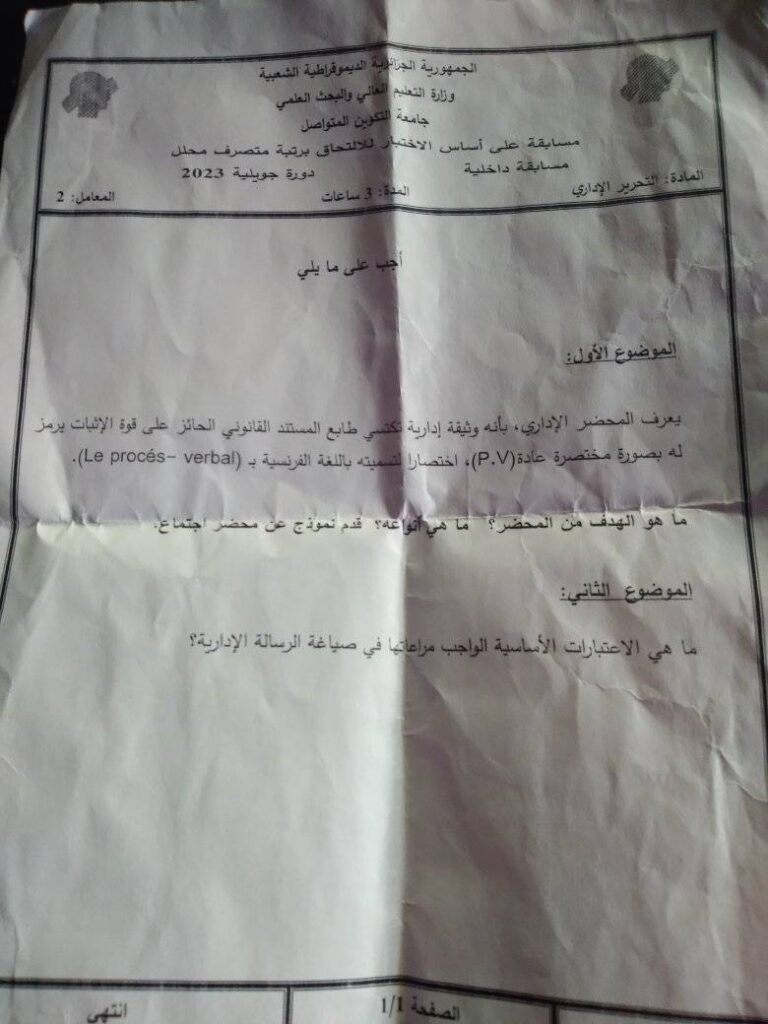 الجمهورية الجزائرية الديموقراطية الشعبية
وزارة التعليم العالي والبحث العلمي
جامعة التكوين المتواصل
مسابقة على أساس الاختبار للالتحاق برتبة متصرف محلل
مسابقة داخلية دورة جويلية 2023
المادة: التحرير الإداري المدة: 3 ساعات المعامل: 2
أجب على ما يلي
الموضوع الأول:
يعرف المحضر الإداري، بأنه وثيقة إدارية تكتسي طابع المستند القانوني الحائز على قوة الإثبات يرمز
له بصورة مختصرة عادة(P.V)، اختصارا لتسميته باللغة الفرنسية بـ (Le procés– verbal).
ما هو الهدف من المحضر؟ ما هي أنواعه؟ قدم نموذج عن محضر اجتماع.
الموضوع الثاني:
ما هي الاعتبارات الأساسية الواجب مراعاتها في صياغة الرسالة الإدارية؟
الصفحة 1/1 انتهى